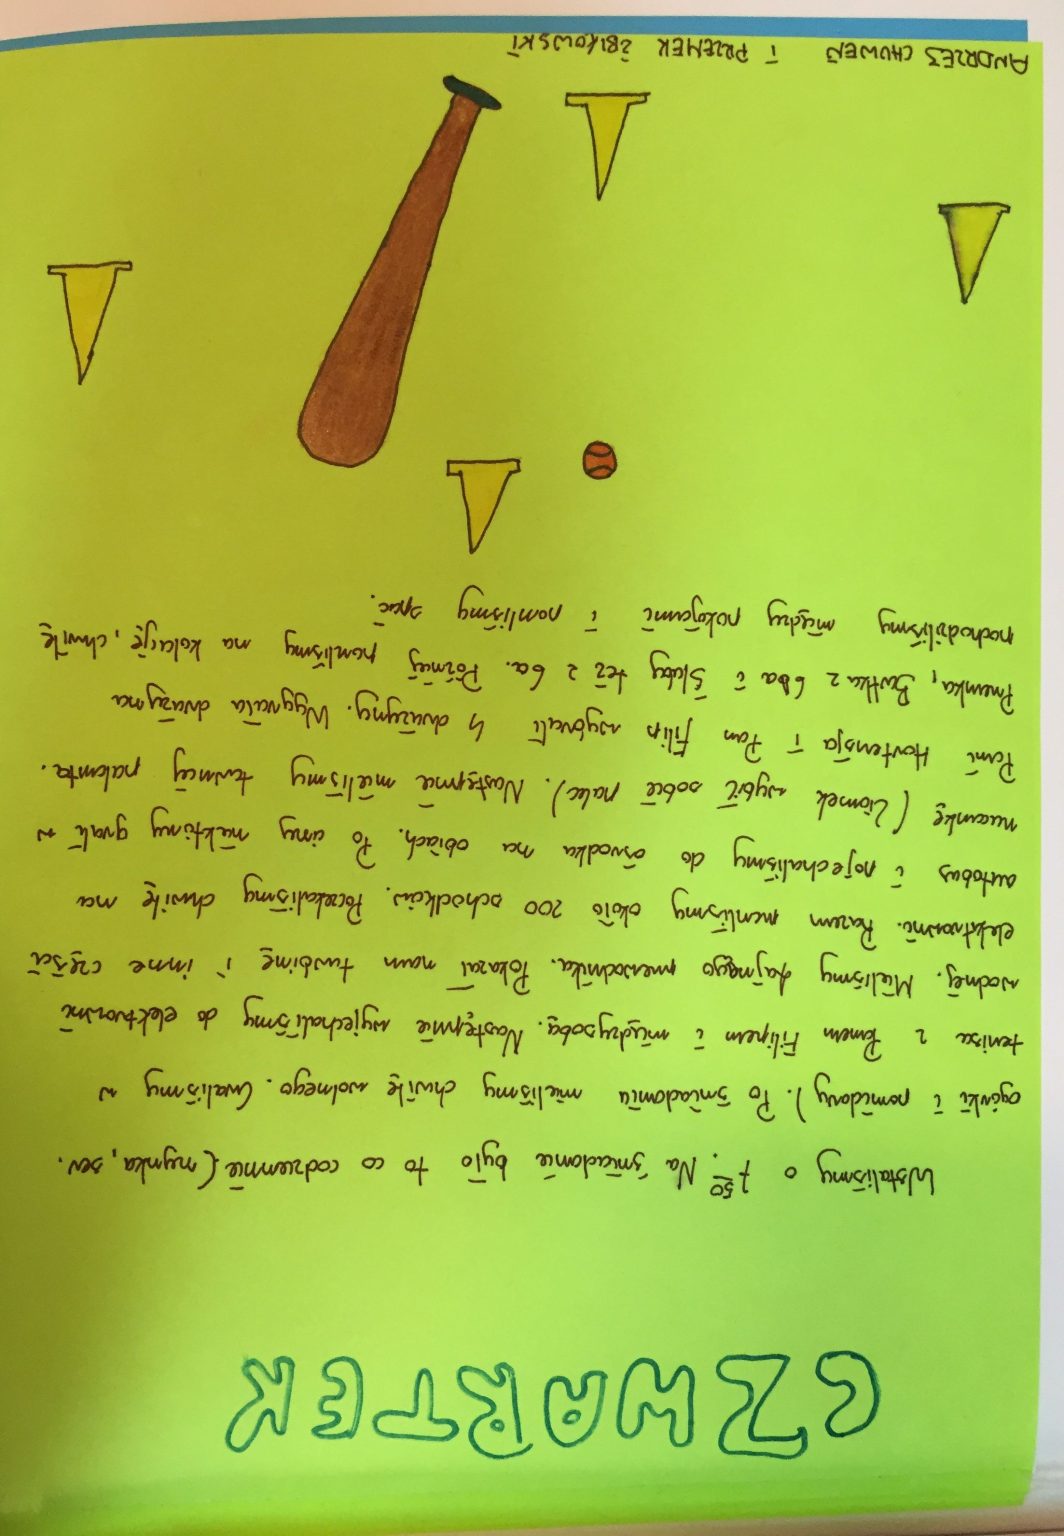 CZWARTEK
Wstaliśmy o 7⁵⁰. Na śniadanie było to co codziennie (szynka, ser,
ogórki i pomidory). Po śniadaniu mieliśmy chwilę wolnego. Graliśmy w
tenisa z Panem Filipem i międzysobą. Następnie wyjechaliśmy do elektrowni
wodnej. Mieliśmy fajnego przewodnika. Pokazał nam turbinę i inne części
elektrowni. Razem przeszliśmy około 200 schodków. Poczekaliśmy chwilę na
autobus i pojechaliśmy do ośrodka na obiad. Po ciszy niektórzy grali w
nużankę (Ziomek wybił sobie palec). Następnie mieliśmy turniej palanta.
Pani Hortensja i Pan Filip wybrali 4 drużyny. Wygrała drużyna
Przemka, Bartka z 6a i Śluby też z 6a. Później poszliśmy na kolację, chwilę
pochodziliśmy między pokojami i poszliśmy spać.
ANDRZEJ CHUWEN I PRZEMEK ŻBIKOWSKI